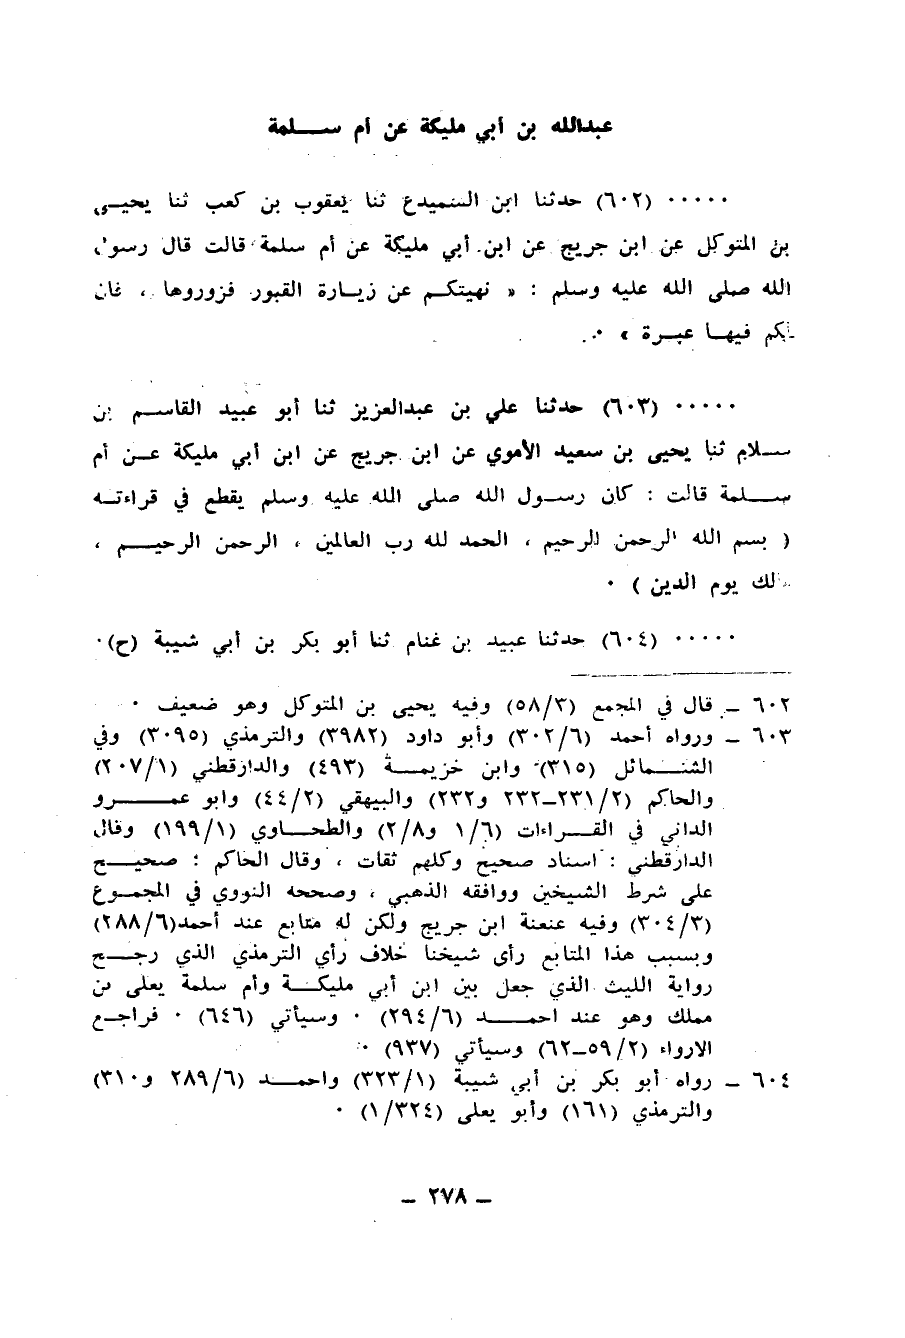 عبدالله بن أبي مليكة عن أم ســـلمة
٠٠٠٠٠ (٦٠٢) حدثنا ابن السميدع ثنا يعقوب بن كعب ثنا يحيـى
بن المتوكل عن ابن جريج عن ابن أبي مليكة عن أم سلمة قالت قال رسول
الله صلى الله عليه وسلم : « نهيتكـم عن زيـارة القبور فزوروها ، فان
لكم فيهـا عبـرة » ٠
٠٠٠٠٠ (٦٠٣) حدثنا علي بن عبدالعزيز ثنا أبو عبيد القاسـم بن
سـلام ثنا يحيى بن سعيد الأموي عن ابن جريج عن ابن أبي مليكة عـن أم
سـلمة قالت : كان رسـول الله صلى الله عليه وسلم يقطع في قراءتـه
( بسم الله الرحمن الرحيم ، الحمد لله رب العالمين ، الرحمن الرحيـم ،
مالك يوم الدين ) ٠
٠٠٠٠٠ (٦٠٤) حدثنا عبيد بن غنام ثنا أبو بكر بن أبي شيبة (ح)٠
٦٠٢ ـ قال في المجمع (٥٨/٣) وفيه يحيى بن المتوكل وهو ضعيف ٠
٦٠٣ ـ ورواه أحمد (٣٠٢/٦) وأبو داود (٣٩٨٢) والترمذي (٣٠٩٥) وفي
الشـمائل (٣١٥) وابن خزيمـة (٤٩٣) والدارقطني (٢٠٧/١)
والحاكم (٢٣١/٢ـ٢٣٢ و٢٣٢) والبيهقي (٤٤/٢) وابو عمـرو
الداني في القـراءات (١/٦ و٢/٨) والطحـاوي (١٩٩/١) وقال
الدارقطني : اسناد صحيح وكلهم ثقات ، وقال الحاكم : صحيـح
على شرط الشيخين ووافقه الذهبي ، وصححه النووي في المجمـوع
(٣٠٤/٣) وفيه عنعنة ابن جريج ولكن له متابع عند أحمد(٢٨٨/٦)
وبسبب هذا المتابع رأى شيخنا خلاف رأي الترمذي الذي رجـح
رواية الليث الذي جعل بين ابن أبي مليكـة وأم سلمة يعلى بن
مملك وهو عند احمـد (٢٩٤/٦) ٠ وسيأتي (٦٤٦) ٠ فراجـع
الارواء (٥٩/٢ـ٦٢) وسيأتي (٩٣٧) ٠
٦٠٤ ـ رواه أبو بكر بن أبي شيبة (٣٢٣/١) واحمـد (٢٨٩/٦ و٣١٠)
والترمذي (١٦١) وأبو يعلى (١/٣٢٤) ٠
ـ ٢٧٨ ـ